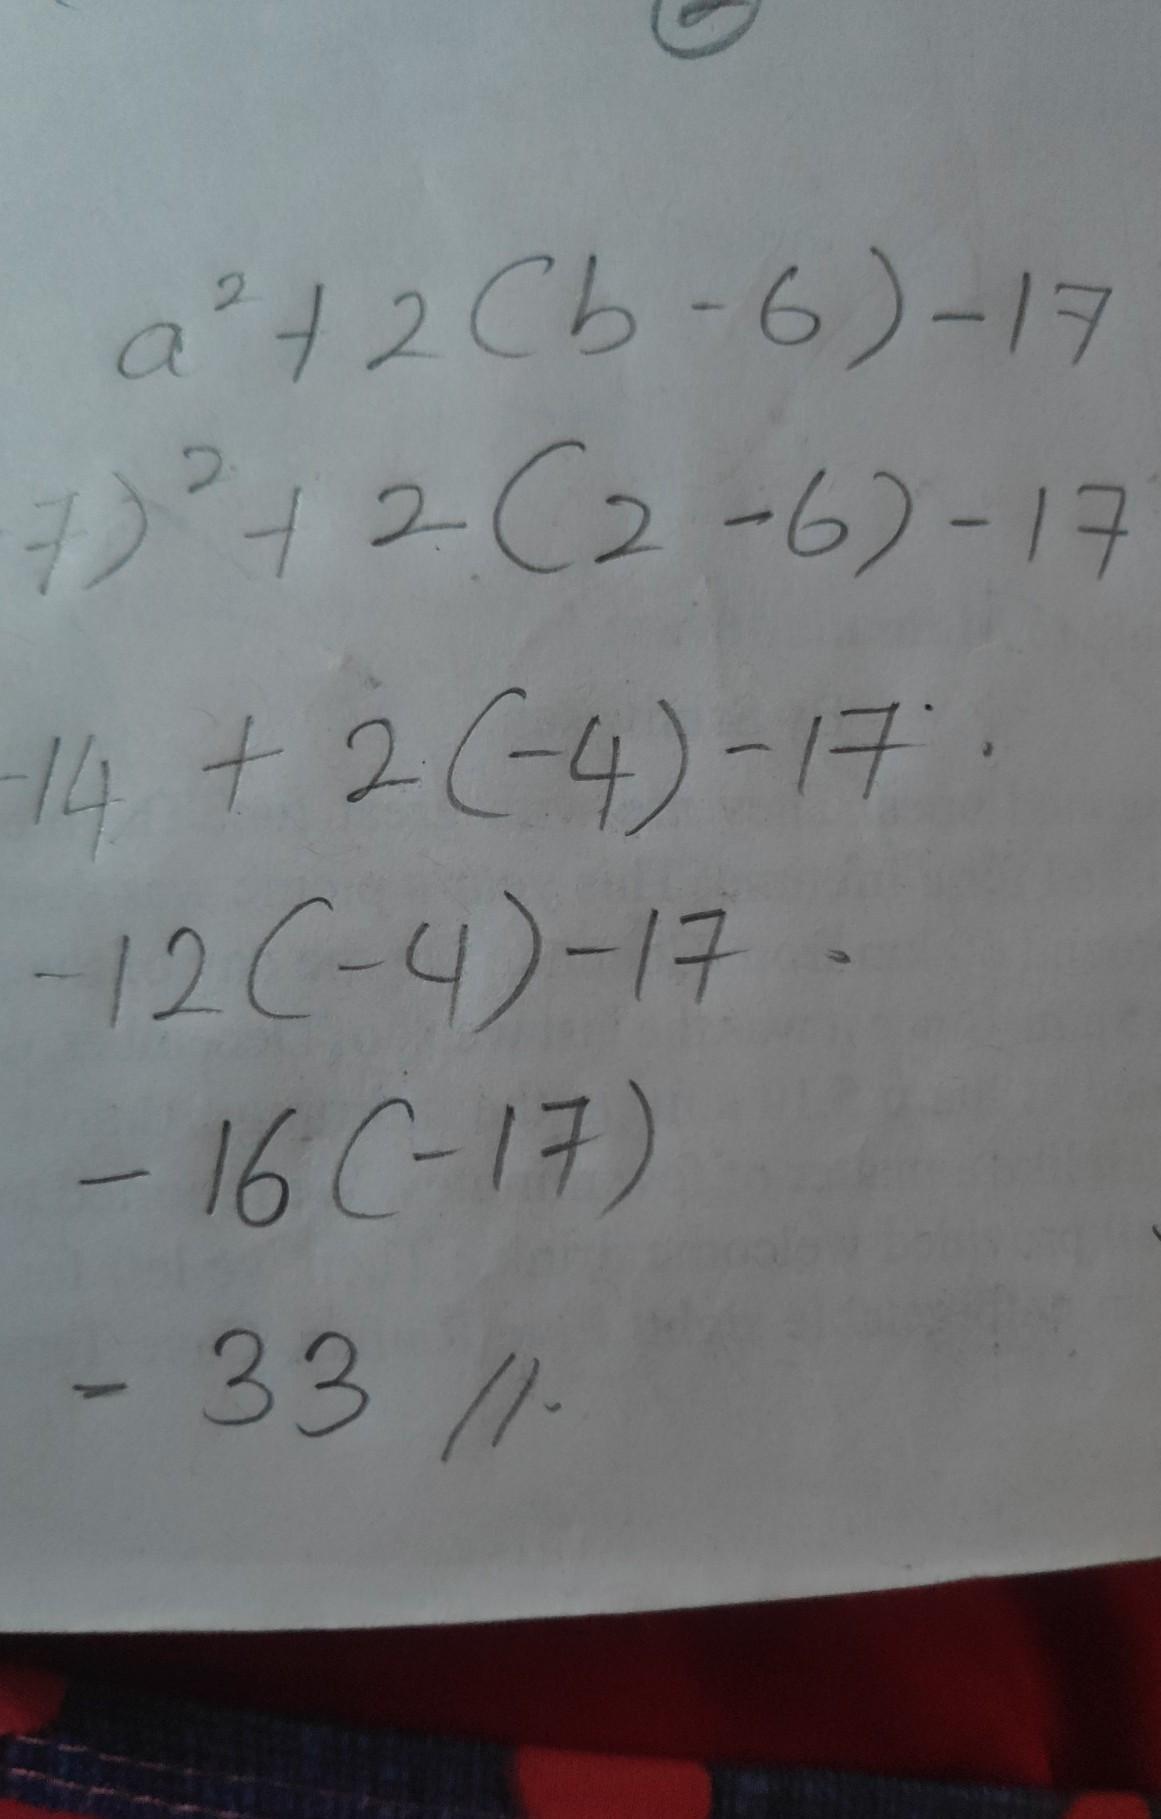 a² + 2(b - 6) - 17
7)² + 2(2 - 6) - 17
-14 + 2(-4) - 17
-12(-4) - 17
- 16(-17)
- 33 //.